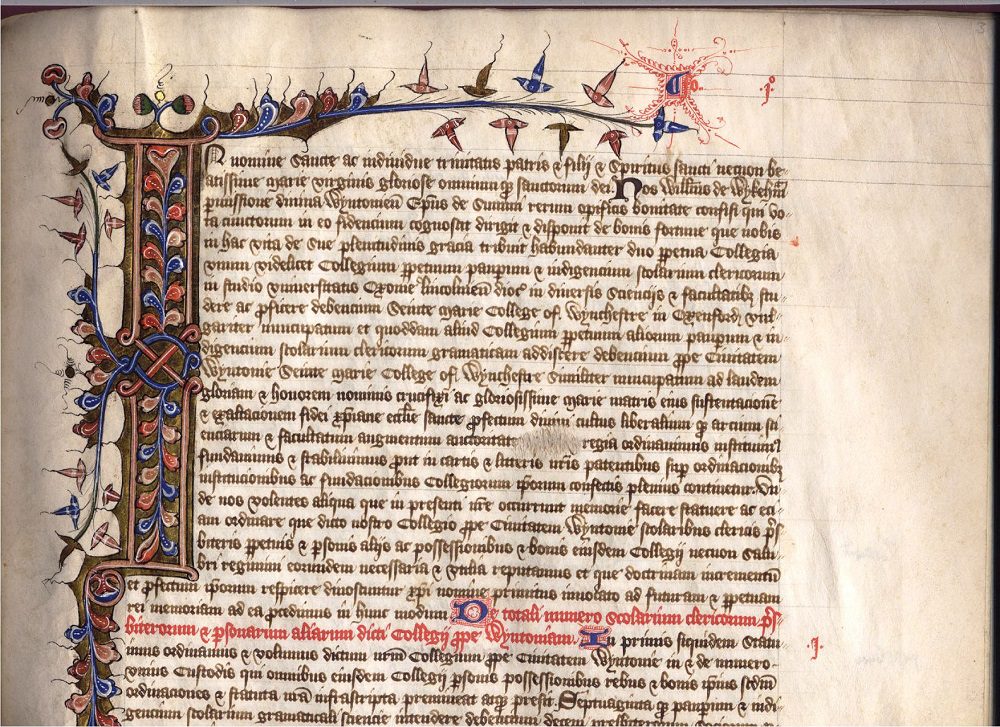 In nomine Sancte ac individue trinitatis patris & filij & Spiritus sancti necnon be-
atissime marie virginis gloriose omnium qz sanctorum dei. Nos Willms de Wykeham
pmissione divina Wyntonien Epus de Summi rerum opificis bonitate confisi qui vo-
ta cunctorum in eo fidencium cognoscit dirigit & disponit de bonis fortune que nobis
in hac vita de Sue plenitudinis gracia tribuit habundanter duo ppetua Collegia
vnum videlicet Collegium ppetuum paupum & indigencium scolarium clericorum
in studio vniuersitatis Oxonie lincolnien dioc in diuersis Sciencijs & facultatibz stu-
dere ac pficere debencium Seinte marie College of Wynchestre in Oxenford vul-
gariter nuncupatum et quoddam aliud Collegium ppetuum aliorum paupum & in-
digencium scolarium clericorum gramaticam addiscere debencium ppe Ciuitatem
Wyntonie Seinte marie College of Wynchestre Similiter nuncupatum ad laudem
gloriam & honorem nominis crucifixi ac gloriosissime marie matris eius sustentacione
& exaltacionem fidei xpiane ecclie sancte pfectum diuini cultus liberalium qz arcium sci-
enciarum & facultatum augmentum auctoritate regia ordinauimus instituim
fundauimus & stabiliuimus put in cartis & litteris nris patentibus sup ordinacionibz
institucionibus ac fundacionibus Collegiorum iporum confectis plenius continetur. Vn-
de nos volentes aliqua que in presenti nre occurrunt memorie facere statuere ac eci-
am ordinare que dicto nostro Collegio ppe Ciuitatem Wyntonie scolaribus clericis ps-
biteris ppetuis & psonis alijs ac possessionibus & bonis eiusdem Collegij necnon salu-
bri regimini eorundem necessaria & vtilia reputamus et que doctrinam incrementū
et pfectum iporum respicere dinoscuntur xpi nomine primitus inuocato ad futuram & ppetuam
rei memoriam ad ea pcedimus in hunc modum De totali numero scolarium clericorum ps-
biterorum & psonarum aliarum dicti Collegij ppe Wyntoniam. In primis siquidem Statu-
imus ordinamus & volumus dictum nrm Collegium ppe Ciuitatem Wyntonie in & de numero
vnius Custodis qui omnibus eiusdem Collegij psonis possessionibus rebus & bonis ipius scdm
ordinaciones & statuta nra infrascripta premineat atqz presit. Septuaginta qz paupum & indi-
gencium scolarium gramaticali sciencie intendere debencium decem presbiterorum